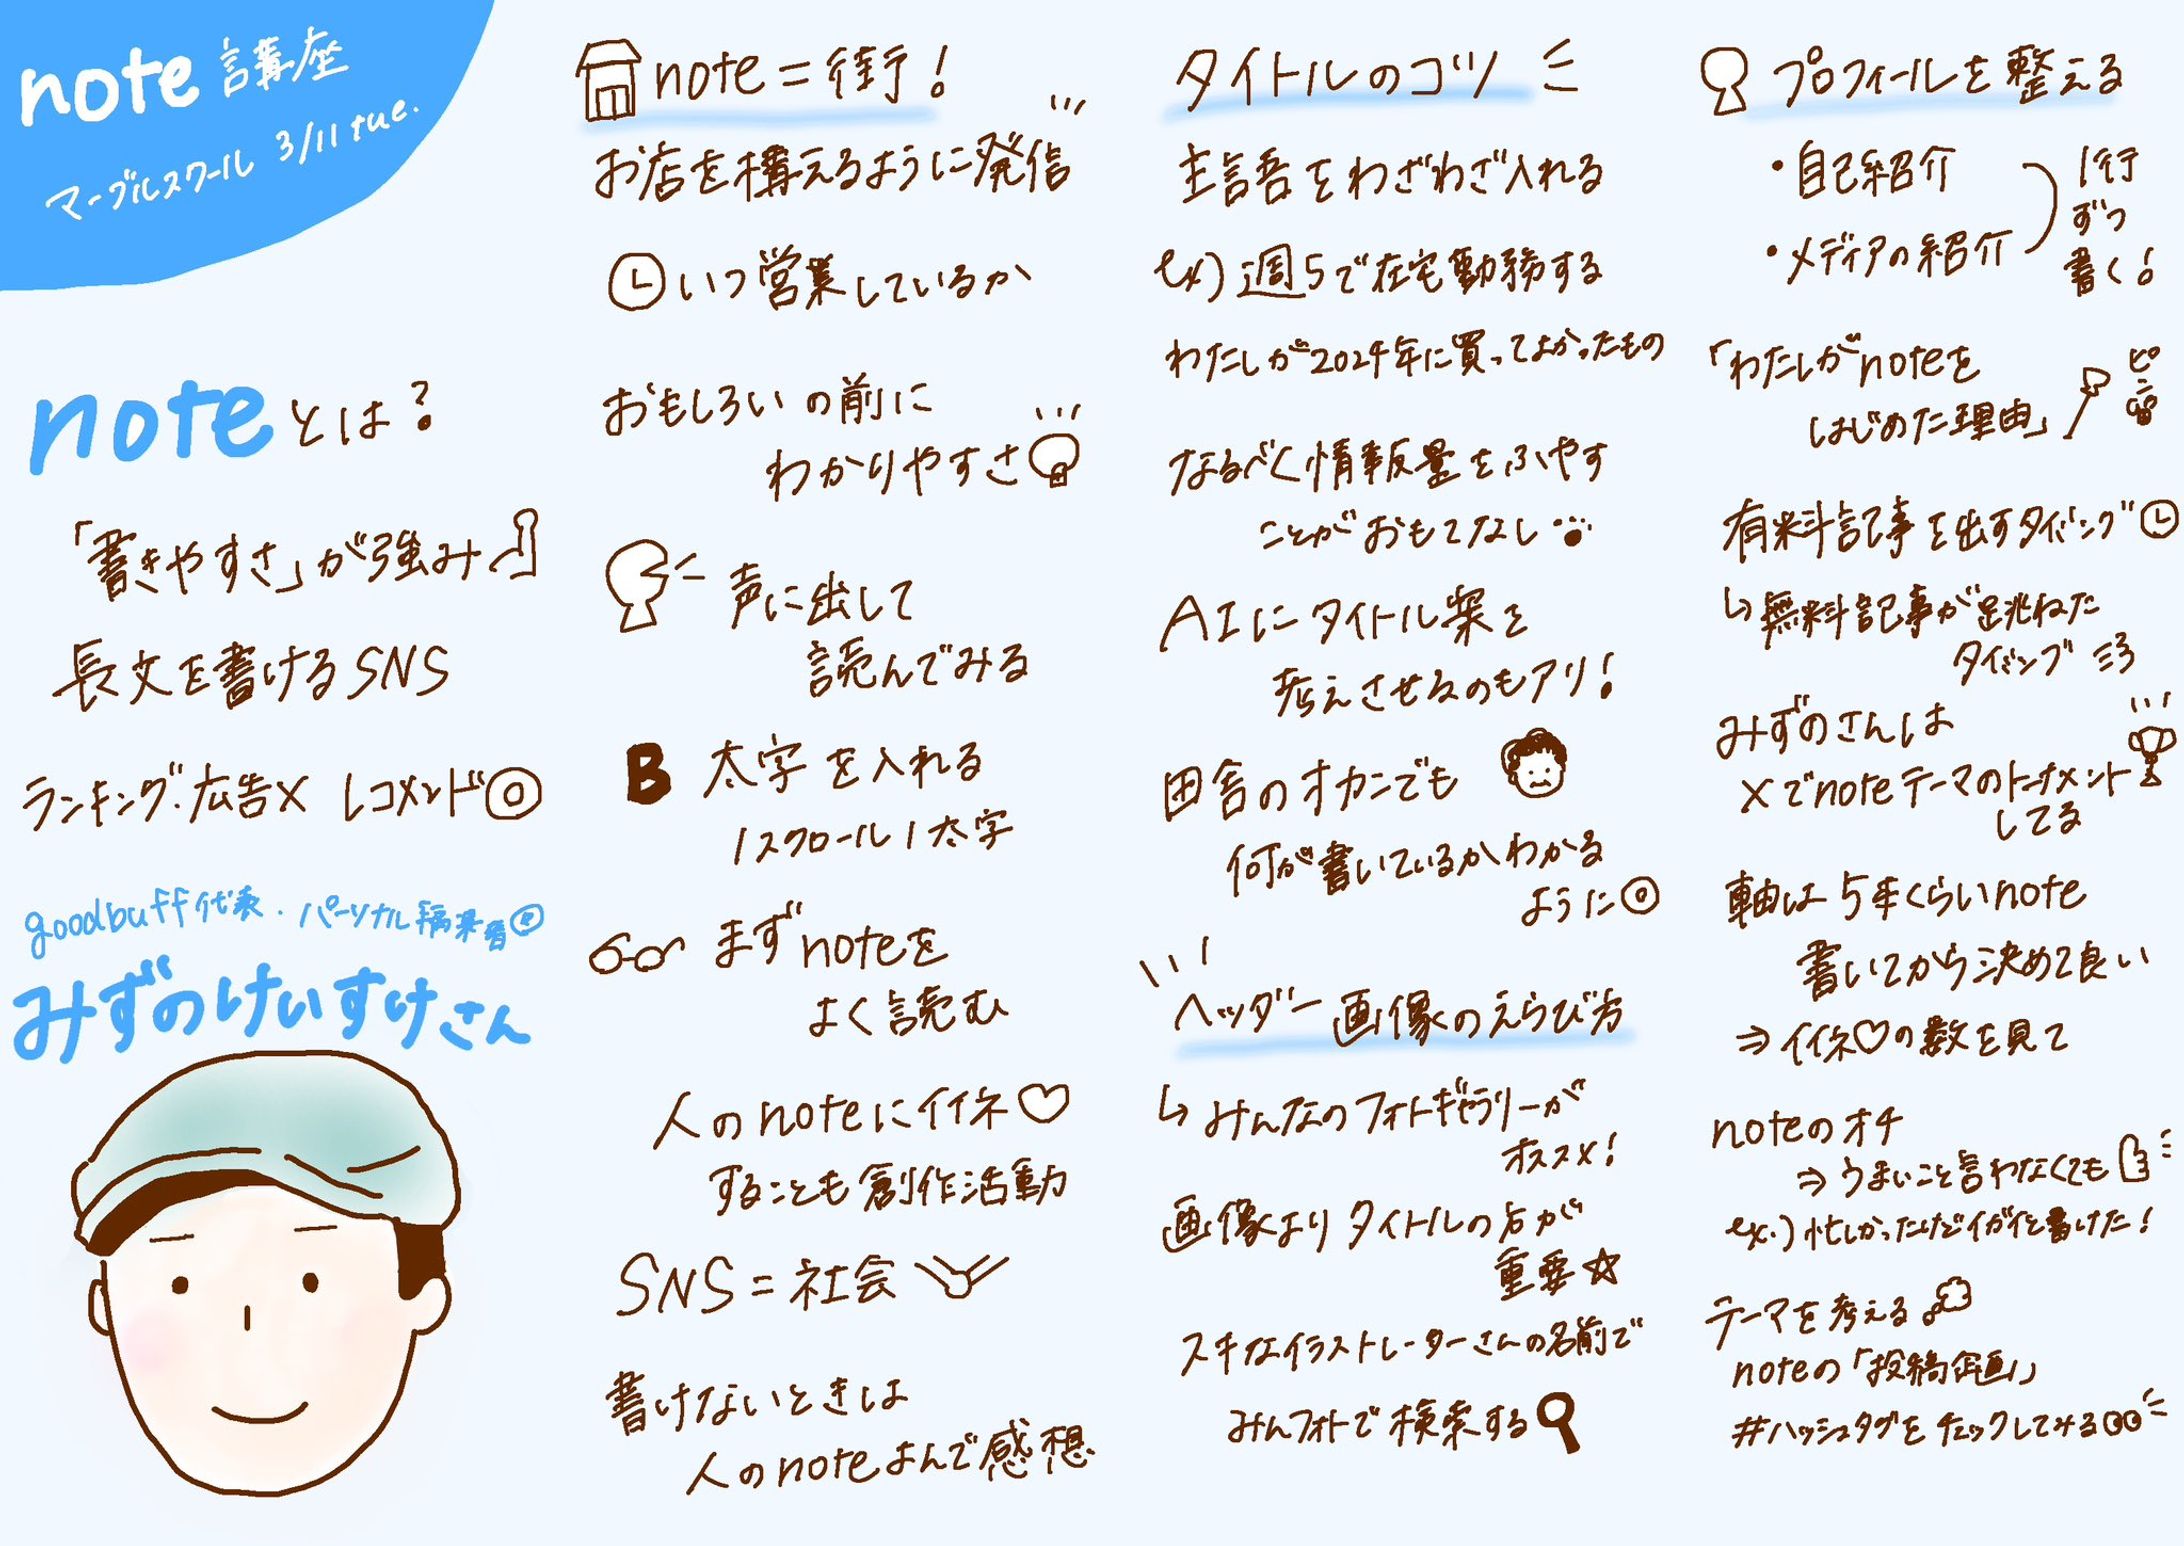 note 講座
マーブルスクール 3/11 tue.
noteとは?
「書きやすさ」が強み
長文を書けるSNS
ランキング・広告× レコメンド◎
goodbuff代表・パーソナル編集者
みずのけいすけさん
note=街!
お店を構えるように発信
いつ営業しているか
おもしろいの前に
わかりやすさ
声に出して
読んでみる
B 太字を入れる
1スクロール1太字
まずnoteを
よく読む
人のnoteにイイネ♡
することも創作活動
SNS=社会
書けないときは
人のnoteよんで感想
タイトルのコツ
主語をわざわざ入れる
ex)週5で在宅勤務する
わたしが2024年に買ってよかったもの
なるべく情報量をふやす
ことがおもてなし
AIにタイトル案を
考えさせるのもアリ!
田舎のオカンでも
何が書いているかわかる
ように◎
ヘッダー画像のえらび方
↳みんなのフォトギャラリーが
オススメ!
画像よりタイトルの方が
重要☆
スキなイラストレーターさんの名前で
みんフォトで検索する
プロフィールを整える
・自己紹介
・メディアの紹介
1行
ずつ
書く!
「わたしがnoteを
はじめた理由」
ピン
有料記事を出すタイミング
↳無料記事が跳ねた
タイミング
みずのさんは
Xでnoteテーマのトーナメント
してる
軸は5本くらいnote
書いてから決めて良い
⇒イイネ♡の数を見て
noteのオチ
⇒うまいこと言わなくても
ex.)忙しかったけどイガイと書けた!
テーマを考える
noteの「投稿企画」
#ハッシュタグをチェックしてみる